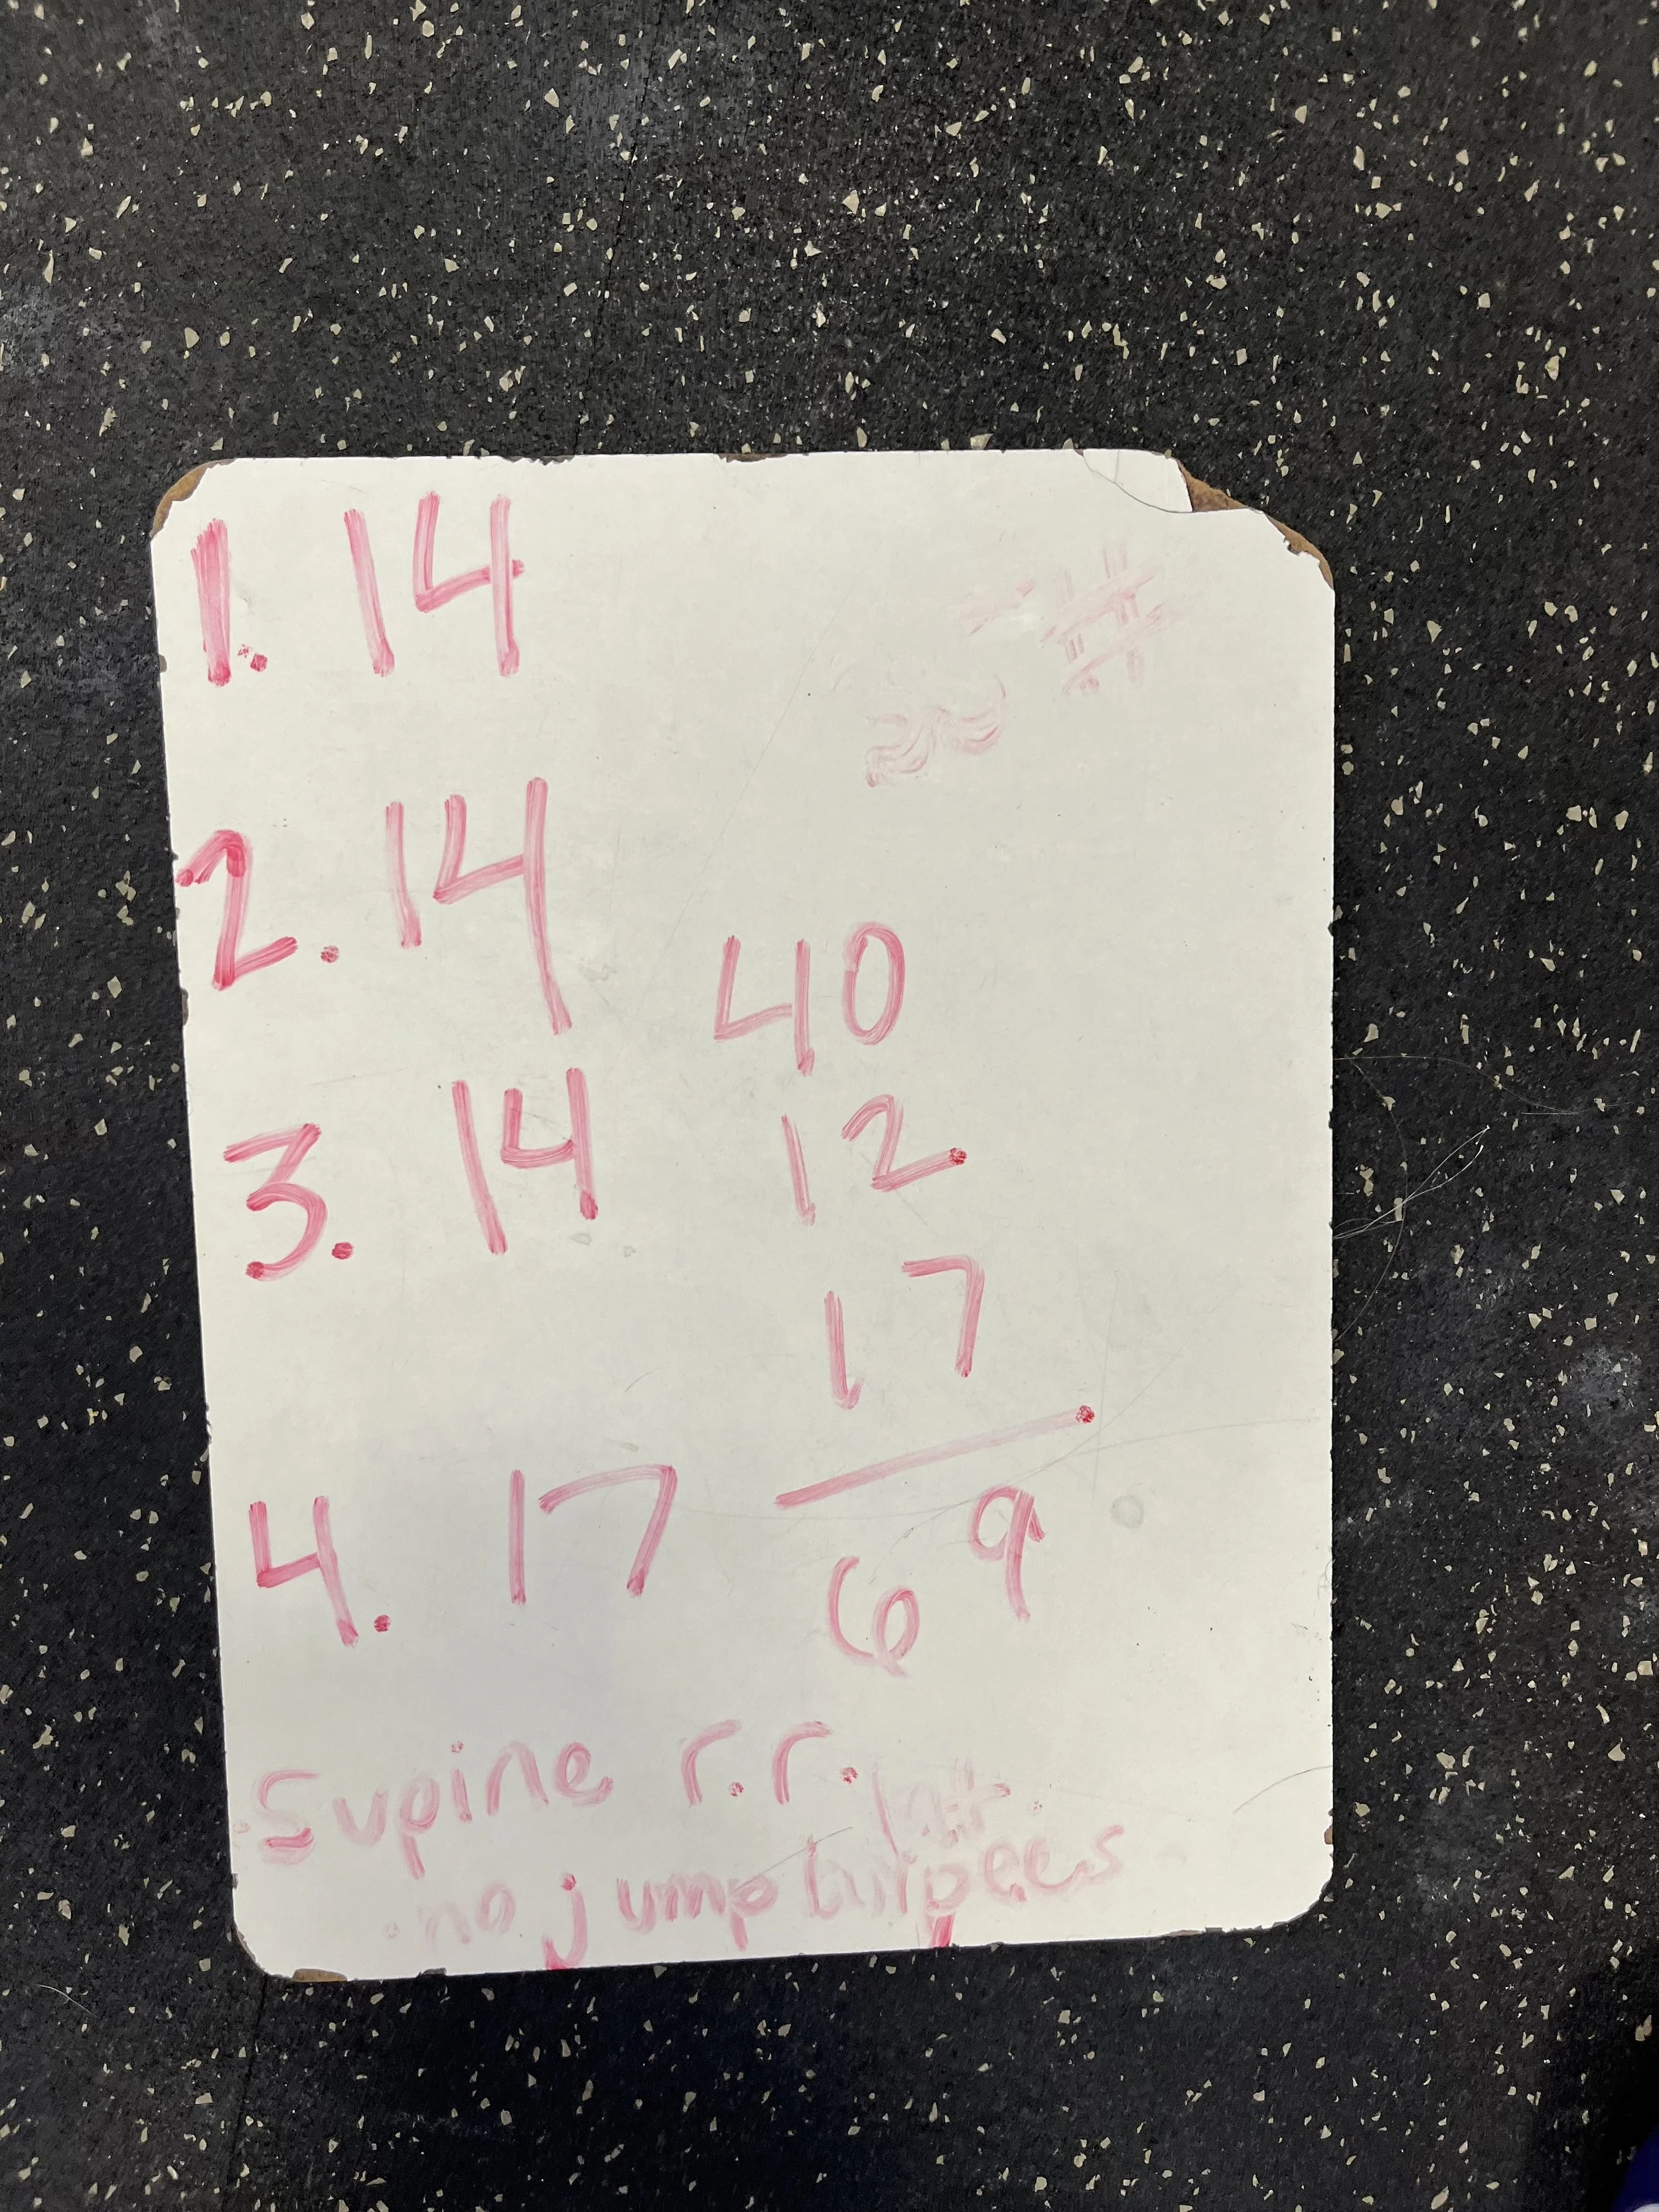 1. 14
2. 14
40
3. 14
12
17
4. 17
69
Supine r.r.
no jump burpees